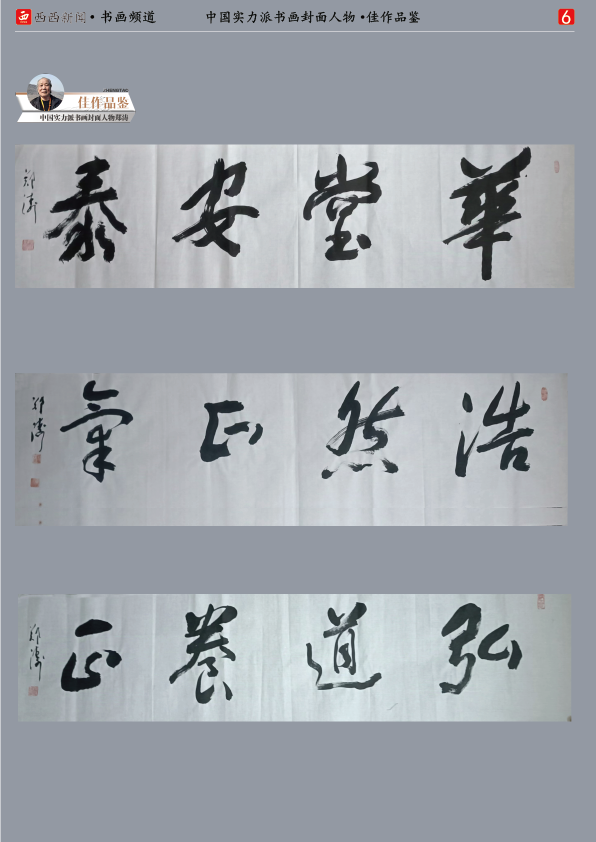 西西新闻·书画频道
中国实力派书画封面人物·佳作品鉴
6
佳作品鉴
中国实力派书画封面人物郑涛
華堂安泰
郑涛
浩然正氣
郑涛
弘道養正
郑涛